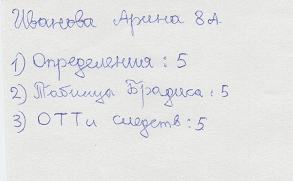 Иванова Арина 8А
1) Определения : 5
2) Таблица Брадиса : 5
3) ОТТ и следств : 5